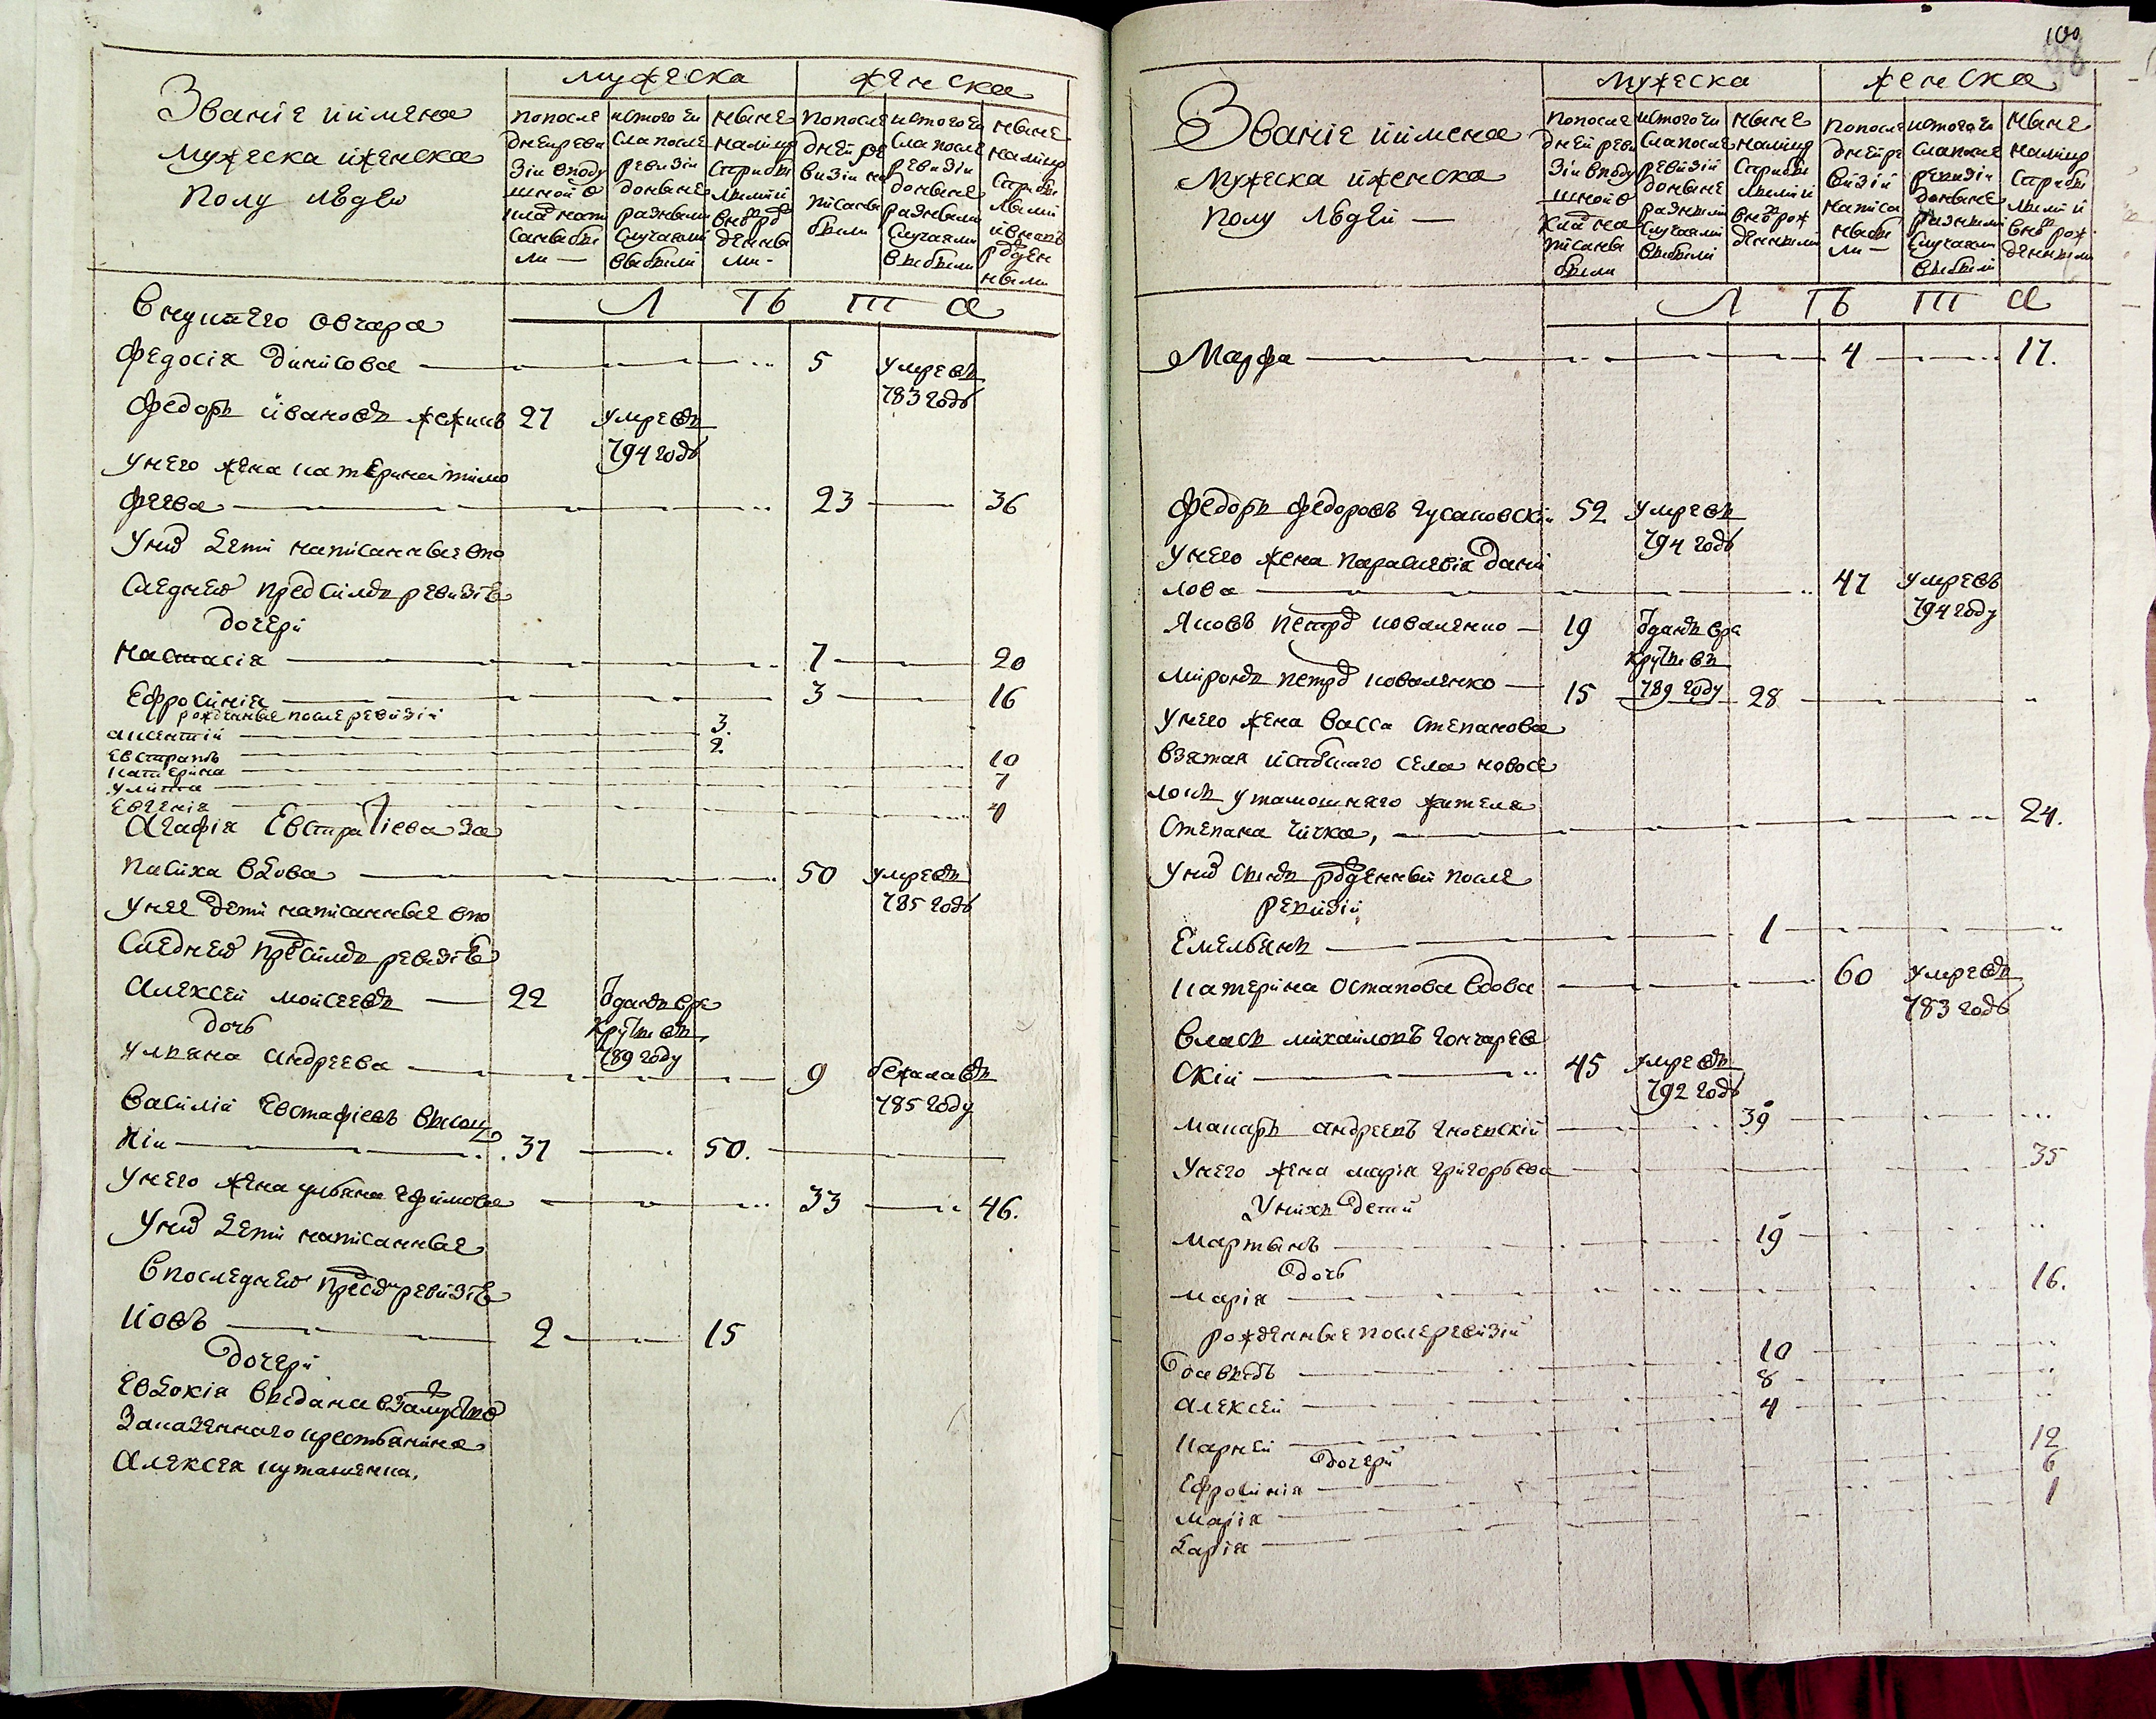 Званіе иимена
мужеска иженска
полу людей
мужеска
женска
попосле
дней реви
зіи вподу
шной о
клад напи
саны бы
ли —
истого чи
сла после
ревизіи
доныне
разными
случаями
выбыли
ныне
налицо
сприбы
лыми и
вновь рож
денны
ми -
попосле
дней ре
визіи на
писаны
были
истого чи
сла после
ревизіи
доныне
разными
случаями
выбыли
ныне
налицо
сприбы
лыми
ивновь
рожден
ными
Л Ѣ Т А
внукъ его овчара
Федосія Динисова 5 умре въ
783 годѣ
Федоръ ивановъ 27 умре въ
794 годѣ
унего жена катерина тимо
феева 23 36
уних дети написанные впо
следней пред симъ ревизіѣ
дочери
настасія 7 20
Ефросинія 3 16
рожденные после ревизіи
3.
Евстратъ 2
катерина 10
улита 7
Евгенія 4
Агафія Евстратіева За
пасиха вдова 50 умре въ
785 годѣ
унее дети написанные впо
следней пред симъ ревизіѣ
Алексей мойсеевъ 22 отданъ вре
круты въ
789 году
дочь
ульяна андреева 9 бежала въ
785 году
василій Евстафіевъ высоц
кій 37 50.
унего жена ульяна ефимова 33 46.
уних дети написанные
впоследней пред сим ревизіѣ
Іовъ 2 15
дочери
Евдокія выдана взамужество
заказенного крестьянина
Алексея

100
Званіе иимена
мужеска иженска
полу людей —
мужеска
женска
попосле
дней реви
зіи вподу
шной о
клад на
писаны
были
истого чи
сла после
ревизіи
доныне
разными
случаями
выбыли
ныне
налицо
сприбы
лыми и
вновь рож
денными
попосле
дней ре
визіи
написа
ны бы
ли —
истого чи
сла после
ревизіи
доныне
разными
случаями
выбыли
ныне
налицо
сприбы
лыми и
вновь рож
денными
Л Ѣ Т А
Марфа 4 17.
Федоръ Федоровъ Гусаковскій 52 умре въ
794 годѣ
унего жена параскевія дани
лова 47 умре въ
794 году
Яковъ петров коваленко — 19 отданъ вре
круты въ
789 году
миронъ петров коваленко — 15 28
унего жена васса степанова
взятая изтогошнего села новосе
локъ утамошнего жителя
степана чичка, 24.
уних сынъ рожденный после
ревизіи
Емельянъ 1
катерина остапова вдова 60 умре въ
783 годѣ
власъ михайловъ гончарев
скій 45 умре въ
792 годѣ
макаръ андреевъ гноевскій 39
унего жена марія григорьева 35
унихъ дети
мартынъ 19
дочь
марія 16.
рожденные после ревизіи
давидъ 10
алексей 8
карней 4
дочери
Ефросинія 12
марія 6
дарія 1